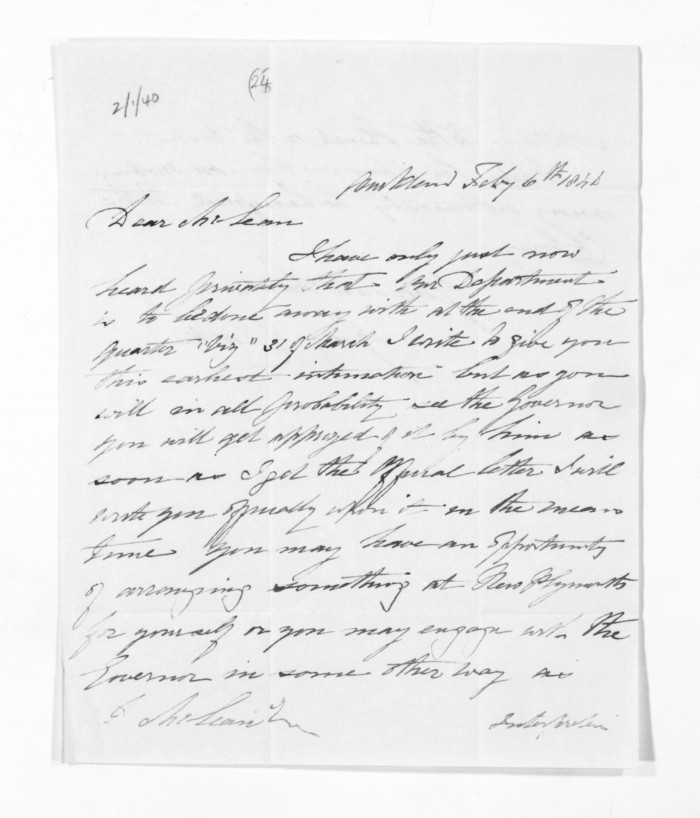 2/1/40
(24)
Auckland Feby 6th 1846
Dear McLean
I have only just now
heard privately that our Department
is to be done away with at the end of the
quarter "Viz" 31 of March I write to give you
this earliest intimation but as you
will in all probability see the Governor
you will get apprized of it by him as
soon as I get the official letter I will
write you officially upon it. in the mean
time you may have an opportunity
of arranging something at New Plymouth
for yourself or you may engage with the
Governor in some other way as
McLean
Interpreter